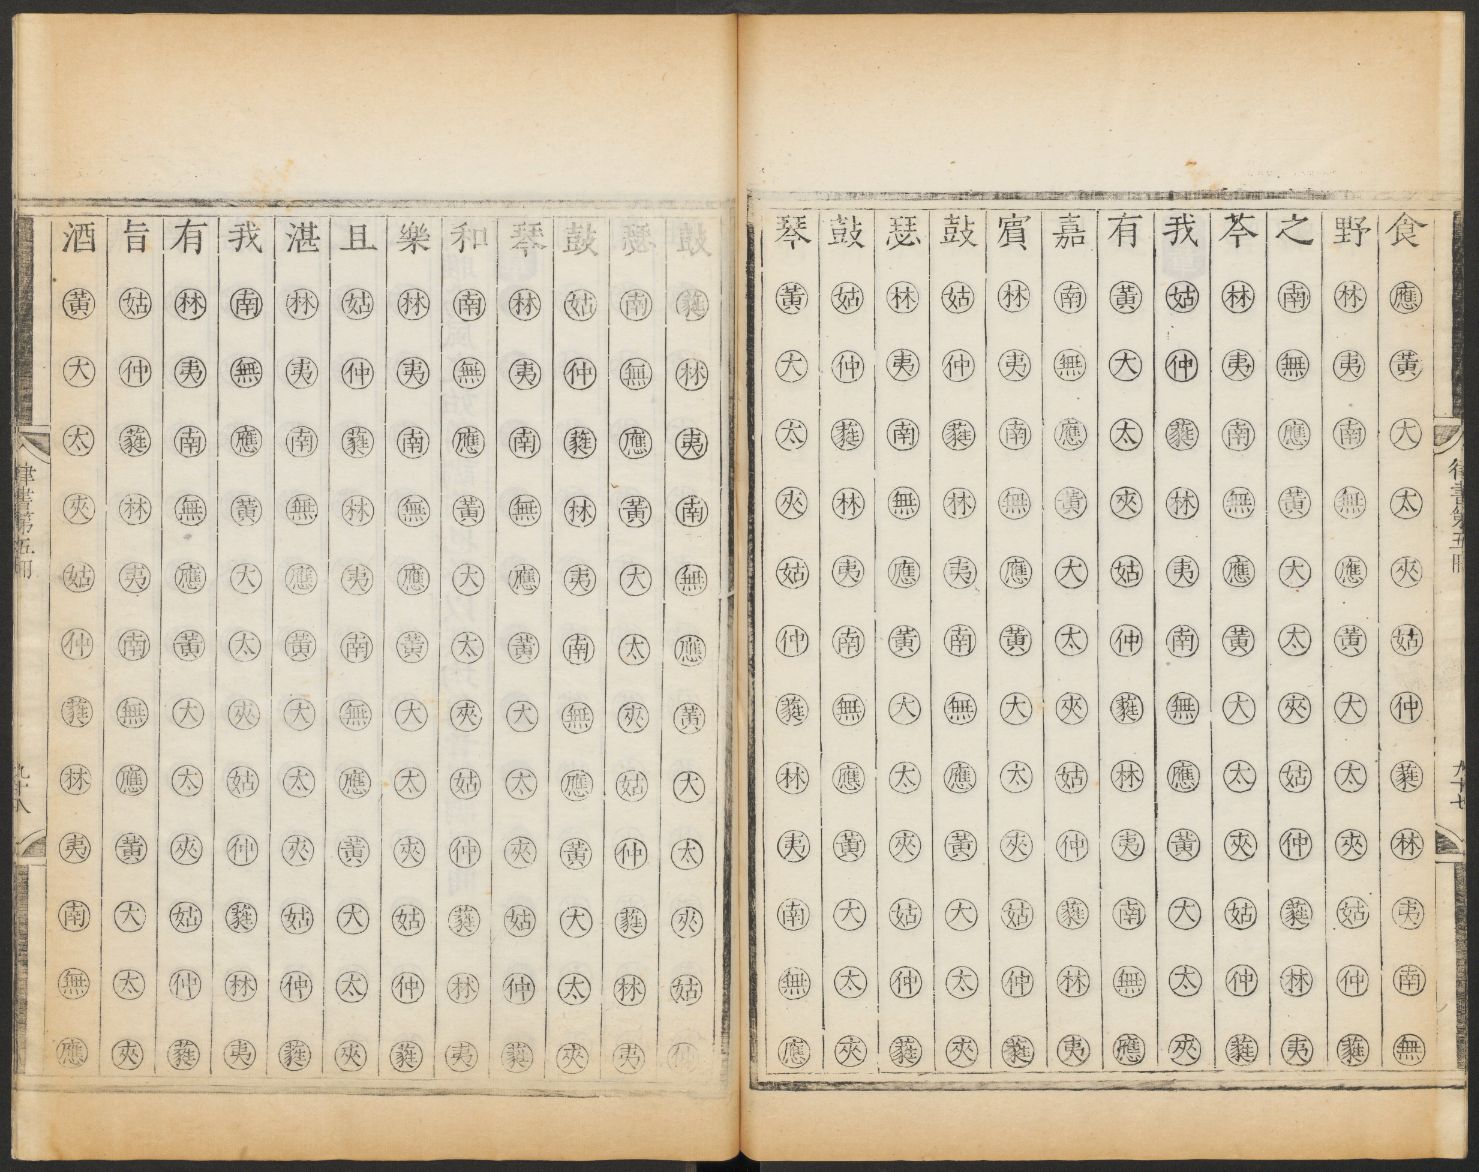 律書第五冊 九十七
食應黃大太夾姑仲蕤林夷南無
野林夷南無應黃大太夾姑仲蕤
之南無應黃大太夾姑仲蕤林夷
芩林夷南無應黃大太夾姑仲蕤
我姑仲蕤林夷南無應黃大太夾
有黃大太夾姑仲蕤林夷南無應
嘉南無應黃大太夾姑仲蕤林夷
賓林夷南無應黃大太夾姑仲蕤
鼓姑仲蕤林夷南無應黃大太夾
瑟林夷南無應黃大太夾姑仲蕤
鼓姑仲蕤林夷南無應黃大太夾
琴黃大太夾姑仲蕤林夷南無應
鼓蕤林夷南無應黃大太夾姑仲
瑟南無應黃大太夾姑仲蕤林夷
鼓姑仲蕤林夷南無應黃大太夾
琴林夷南無應黃大太夾姑仲蕤
和南無應黃大太夾姑仲蕤林夷
樂林夷南無應黃大太夾姑仲蕤
且姑仲蕤林夷南無應黃大太夾
湛林夷南無應黃大太夾姑仲蕤
我南無應黃大太夾姑仲蕤林夷
有林夷南無應黃大太夾姑仲蕤
旨姑仲蕤林夷南無應黃大太夾
酒黃大太夾姑仲蕤林夷南無應
律書第五冊 九十八